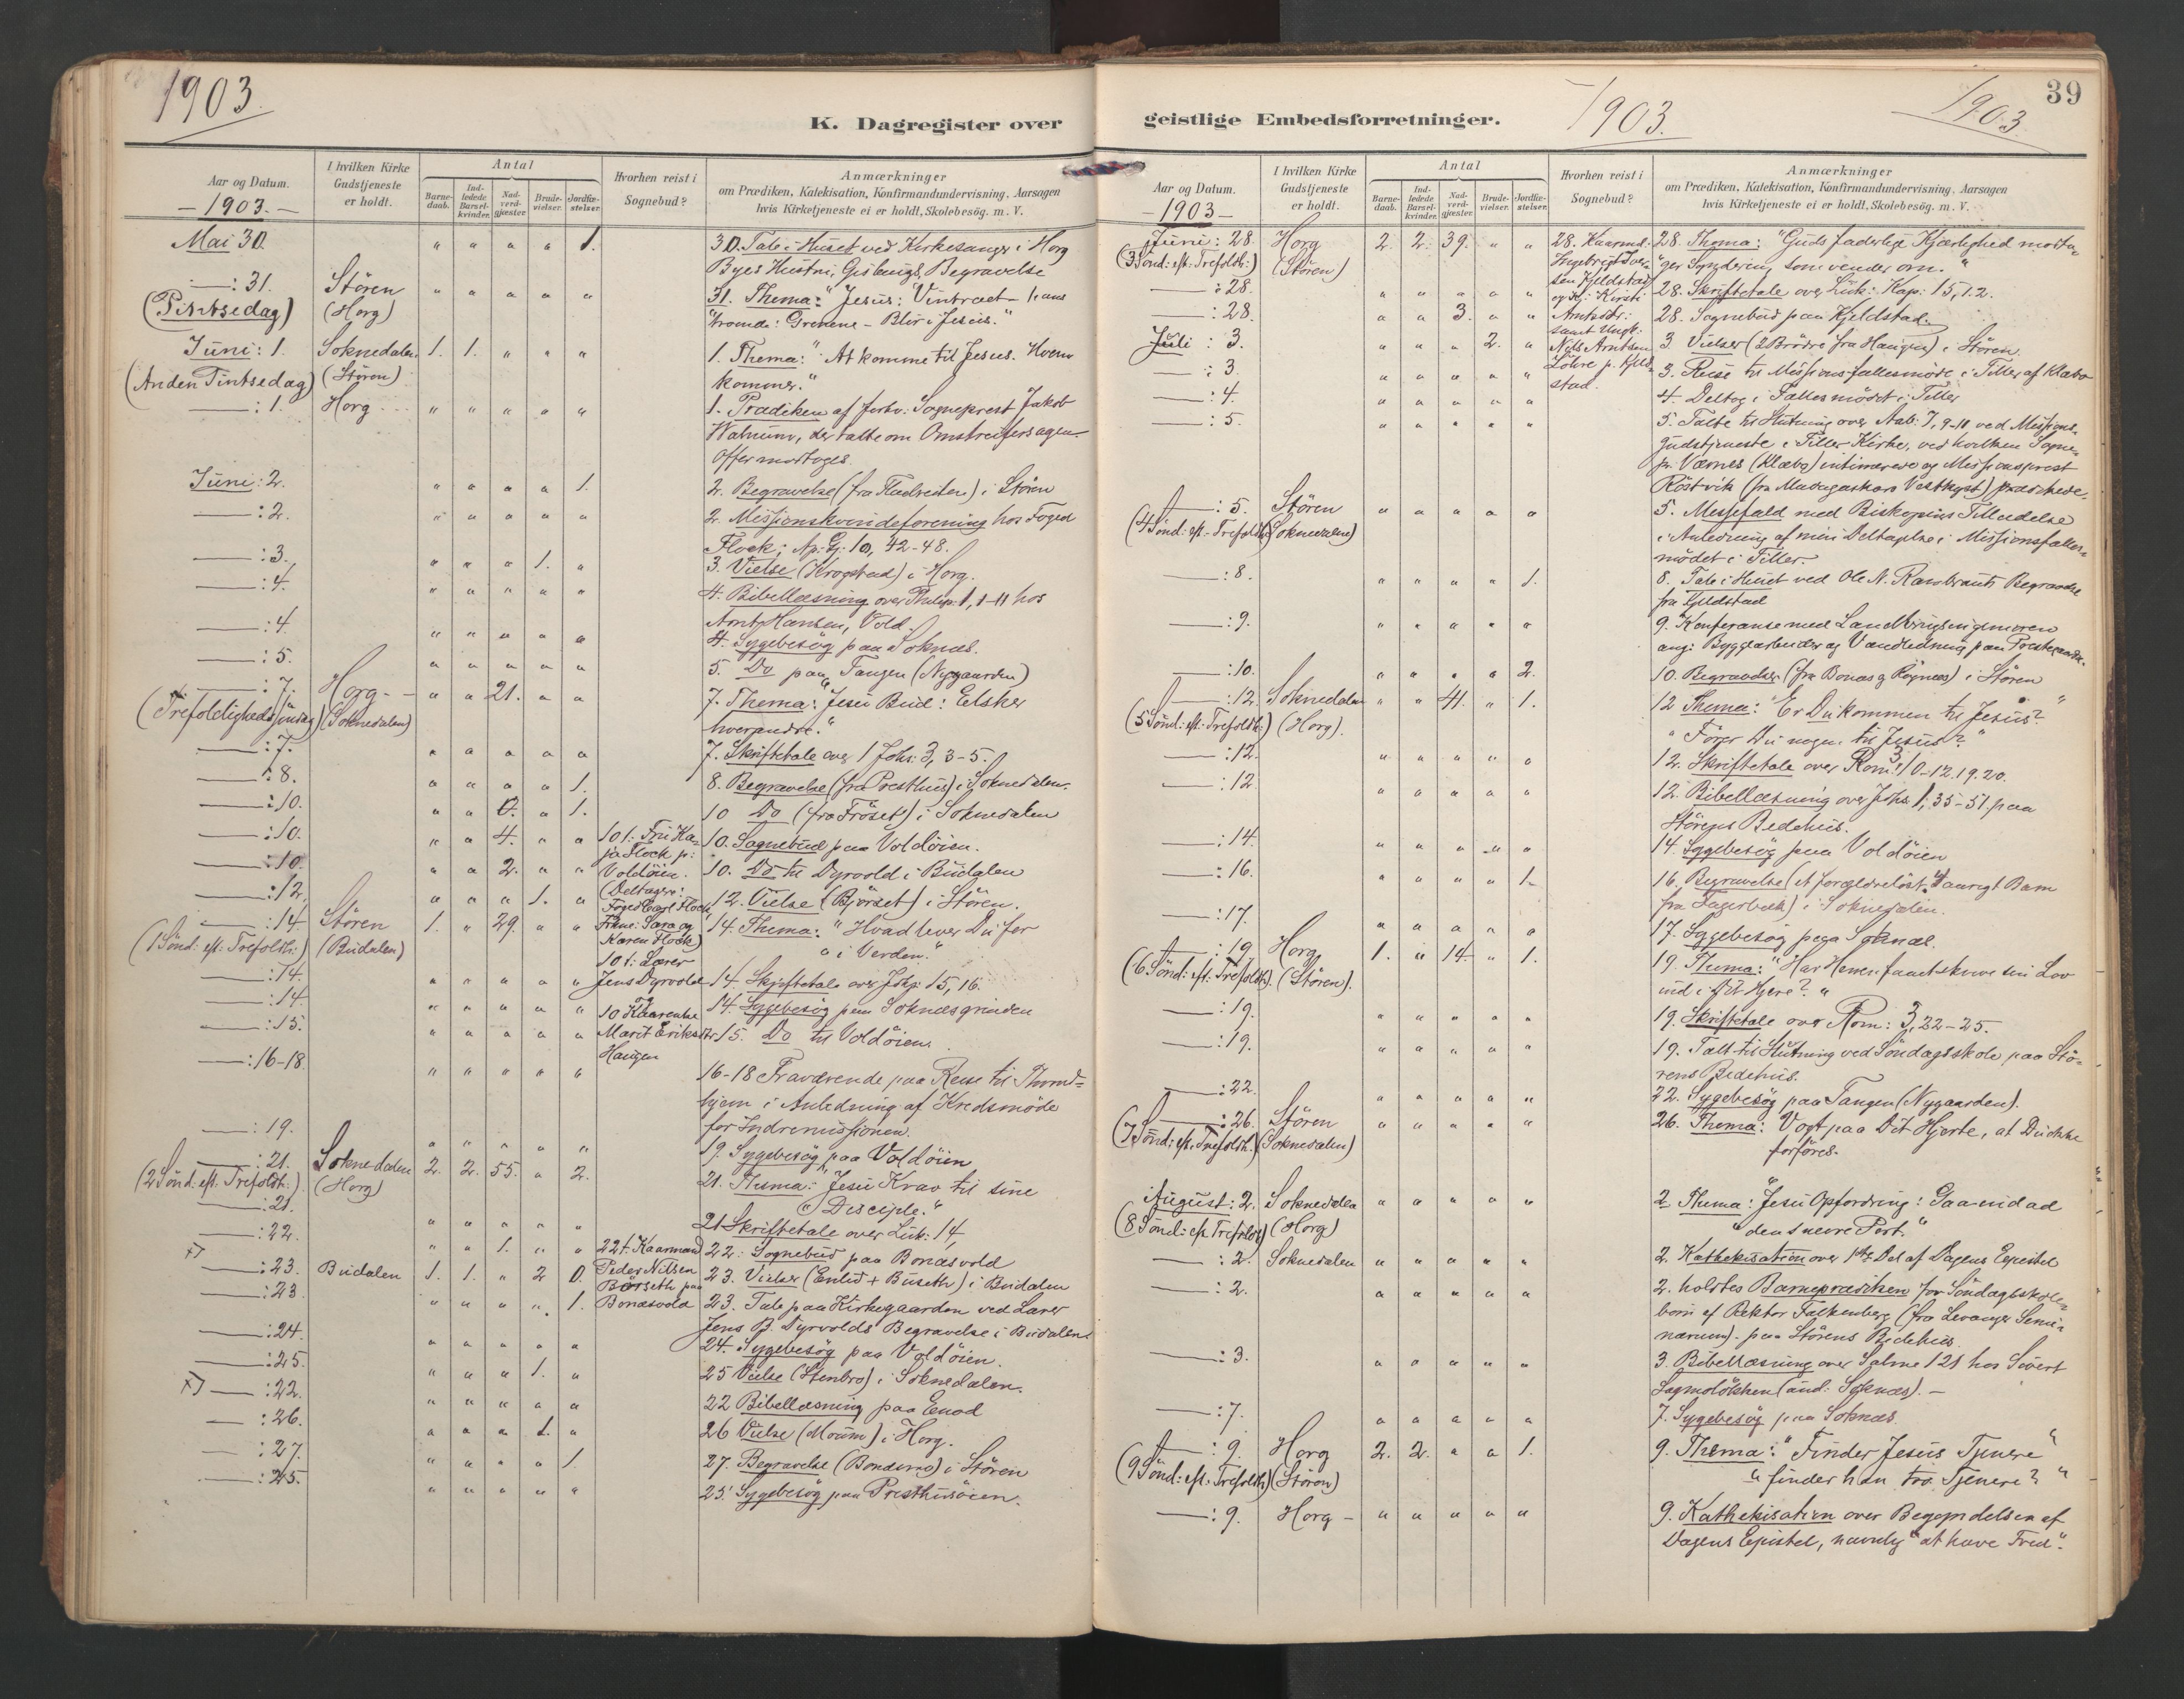 1903.
K. Dagregister over
Aar og Datum.
- 1903. -
I hvilken Kirke
Gudstjeneste
er holdt.
Antal
Barne-
daab.
Ind-
ledede
Barsel-
kvinder.
Nad-
verd-
gjester
Brude-
vielser.
Jordfæ-
stelser.
Hvorhen reist i
Sognebud?
Anmærkninger
om Prædiken, Katekisation, Konfirmandundervisning. Aarsagen
hvis Kirketjeneste ei er holdt, Skolebesög. m. V.
Mai 30. " " " " 1. 30. Tale i Huset ved Kirkesanger i Horg
Byes Hustru, Begravelse
— : 31. Stören " " " " " 31. Thema: "Jesus: Vintræet - hans
(Pintsedag) (Horg) "Grenene - Bliv i Jesus."
Juni: 1. Soknedalen 1. 1. " " " 1. Thema: "At komme til Jesus. Hvem
(Anden Pintsedag) (Stören) kommer."
— : 1. Horg " " " " " 1. Prædiken af forhv: Sogneprest Jakob
Walnum, der talte om Omstreifersagen.
Offer modtoges.
Juni: 2. " " " " 1. 2. Begravelse (fra ) i Stören
— : 2. " " " " " 2. Missionskvindeforening hos Foged
Flock; Ap: Gj: 10, 42-48.
— : 3. " " " 1. " 3. Vielse (Krogstad) i Horg.
— : 4. " " " " " 4. Bibellæsning over Philip: 1, 1-11 hos
Arnt Hansen, Vold.
— : 4. " " " " " 4. Sygebesög paa Soknæs.
— : 5. " " " " " 5. Do paa Tangen (Nygaarden)
— : 7. Horg - " " 21. " " 7. Thema: "Jesu Bud: Elsker
(Trefoldighedssöndag) (Soknedalen) hverandre."
— : 7. " " " " " 7. Skriftetale over 1 Joh: 3, 3-5.
— : 8. " " " " 1. 8. Begravelse (fra Presthus) i Soknedalen.
— : 10. " " 0. " 1. 10 Do (fra Fröset) i Soknedalen
— : 10. " " 4. " " 10 t. Fru Ka- 10. Sognebud paa Voldöien.
ja Flock p:
— : 10. " " 2. " " Voldöien. 10. Do til Dyrvold i Budalen
(Deltagere:
— : 12. " " " 1. " Foged Carl Flock, 12. Vielse (Bjørset) i Stören.
— : 14. Stören 1. " 29. " " Frkne: Sara og 14. Thema: "Hvad lever Du for
(1 Sönd: eft: Trefoldh:) (Budalen) Karen Flock) " i Verden."
10 t: Lærer
— : 14. " " " " " Jens Dyrvold 14. Skriftetale over Joh: 15, 16.
— : 14. " " " " " og 10 Kaarenke 14. Sygebesög paa Soknesgrinden
— : 15. " " " " " Marit Eriksdtr 15. Do til Voldöien.
Haugen
— : 16-18. " " " " " 16-18 Fraværende paa Reise til Thrond-
hjem i Anledning af Kredsmöde
for Indremissionen.
— : 19. " " " " " 19. Sygebesög paa Voldöien
— : 21. Soknedalen 2. 2. 55. " 2. 21. Thema: "Jesu Krav til sine
(2 Sönd: eft: Trefoldh:) (Horg) Disciple."
— : 21. " " " " " 21 Skriftetale over Luk: 14,
— : 22. " " 1. " " 22 t. Kaarmand 22: Sognebud paa Bonæsvold
x) — : 23. Budalen 1. 1. " 2 0. Peder Nilsen 23. Vielser (Enlid + Buseth) i Budalen
Börseth paa
— : 23 " " " " 1. Bonæsvold 23. Tale paa Kirkegaarden ved Lærer
Jens P. Dyrvolds Begravelse i Budalen.
— : 24. " " " " " 24. Sygebesög paa Voldöien.
— : 25. " " " 1. " 25 Vielse (Stenbro) i Soknedalen.
x) — : 22. " " " " " 22 Bibellæsning paa Enod
— : 26. " " " 1. " 26 Vielse (Moum) i Horg.
— : 27. " " " " 1. 27. Begravelse (Bonderno) i Stören
— : 25. " " " " " 25. Sygebesög paa Presthusöien.
39
geistlige Embedsforretninger.
1903.
1903.
Aar og Datum.
- 1903 -
I hvilken Kirke
Gudstjeneste
er holdt.
Antal
Barne-
daab.
Ind-
ledede
Barsel-
kvinder.
Nad-
verd-
gjester
Brude-
vielser.
Jordfæ-
stelser.
Hvorhen reist i
Sognebud?
Anmærkninger
om Prædiken, Katekisation, Konfirmandundervisning, Aarsagen
hvis Kirketjeneste ei er holdt, Skolebesög. m. V.
Juni: 28. Horg 2. 2. 39. " " 28. Kaarmd: 28. Thema: "Guds faderlige Kjærlighed modta-
(3 Sönd: eft: Trefoldh:) (Stören) Ingebrigt Iver- "ger Synderen som vender om."
sen Kjeldstad
— : 28. " " " " " og Kj: Kirsti 28. Skriftetale over Luk: Kap: 15, 1.2.
— : 28. " " 3. " " Arntsdtr: 28. Sognebud paa Kjeldstad.
samt Ungk:
Juli: 3. " " " 2. " Nils Arntsen 3 Vielser (2 Brödre fra Haugen) i Stören
— : 3. " " " " " Löhre p. Kjeld- 3. Reise til Missionsfællesmöde i Tiller af Klæbo
— : 4. " " " " " stad. 4. Deltog i Fællesmödet i Tiller
— : 5. " " " " " 5. Talte til Slutning over Aab: 7, 9-11 ved Missions-
gudstjeneste i Tiller Kirke, ved hvilken Sogne-
pr. Værnes (Klæbo) intimerede og Missionsprest
Röstvik (fra Madagaskars Vestkyst) prædikede.
— : 5. Stören " " " " " 5. Messefald med Biskopens Tilladelse
(4 Sönd: eft: Trefoldh:) (Soknedalen) i Anledning af min Deltagelse i Missionsfælles-
mödet i Tiller.
— : 8. " " " " 1. 8. Tale i Huset ved Ole N. Begravelse
fra Kjeldstad
— : 9. " " " " " 9. Konferanse med Landbrugsingeniören
ang: Byggearbeider og Vandledning paa Prestegaarden.
— : 10. " " " " 2. 10. Begravelser (fra Bonæs og Rögnes) i Stören
— : 12. Soknedalen " " 41. " 1. 12 Thema: "Er Du kommen til Jesus?"
(5 Sönd: eft: Trefoldh:) (Horg). "Förer Du nogen til Jesus?"
— : 12. " " " " " 12. Skriftetale over Rom: 3, 10-12. 19. 20.
— : 12. " " " " " 12. Bibellæsning over Joh: 1, 35-51 paa
Störens Bedehus.
— : 14. " " " " " 14. Sygebesög paa Voldöien
— : 16. " " " " 1. 16. Begravelse (et forældrelöst 4 aarigt Barn
fra Lagerbæk) i Soknedalen.
— : 17. " " " " " 17. Sygebesög paa Soknæs.
— : 19. Horg 1. " 14. " 1. 19. Thema: "Har Herren faaet skrive sin Lov
(6 Sönd: eft: Trefoldh:) (Stören). ind i dit Hjerte?"
— : 19. " " " " " 19. Skriftetale over Rom: 3, 22-25.
— : 19. " " " " " 19. Talt til Slutning ved Söndagsskole paa Stö-
rens Bedehus.
— : 22. " " " " " 22. Sygebesög paa Tangen (Nygaarden).
— : 26. Stören " " " " " 26. Thema: Vogt paa Dit Hjerte, at Du ikke
(7 Sönd: eft: Trefoldh:) (Soknedalen) forföres.
August: 2. Soknedalen " " " " " 2 Thema: "Jesu Opfordring: Gaa ind ad
(8 Sönd: eft: Trefoldh:) (Horg) "den snevre Port."
— : 2. Soknedalen " " " " " 2. Kathekisation over 1ste Del af Dagens Epistel
— : 2. " " " " " 2. holdtes Barneprædiken for Söndagsskole-
börn af Rektor Falkenberg (fra Levanger Semi-
narium). paa Störens Bedehus.
— : 3. " " " " " 3. Bibellæsning over Salme 121 hos Sivert
Sagmoløkken (und: Soknæs). —
— : 7. " " " " " 7. Sygebesög paa Soknæs.
— : 9. Horg 2. 2. " " 1. 9. Thema: "Finder Jesus Tjenere"
(9 Sönd: eft: Trefoldh:) (Stören) "finder han tro Tjenere?"
— : 9. Horg - " " " " " 9. Kathekisation over Begyndelsen af
Dagens Epistel, navnlig "at have Fred".